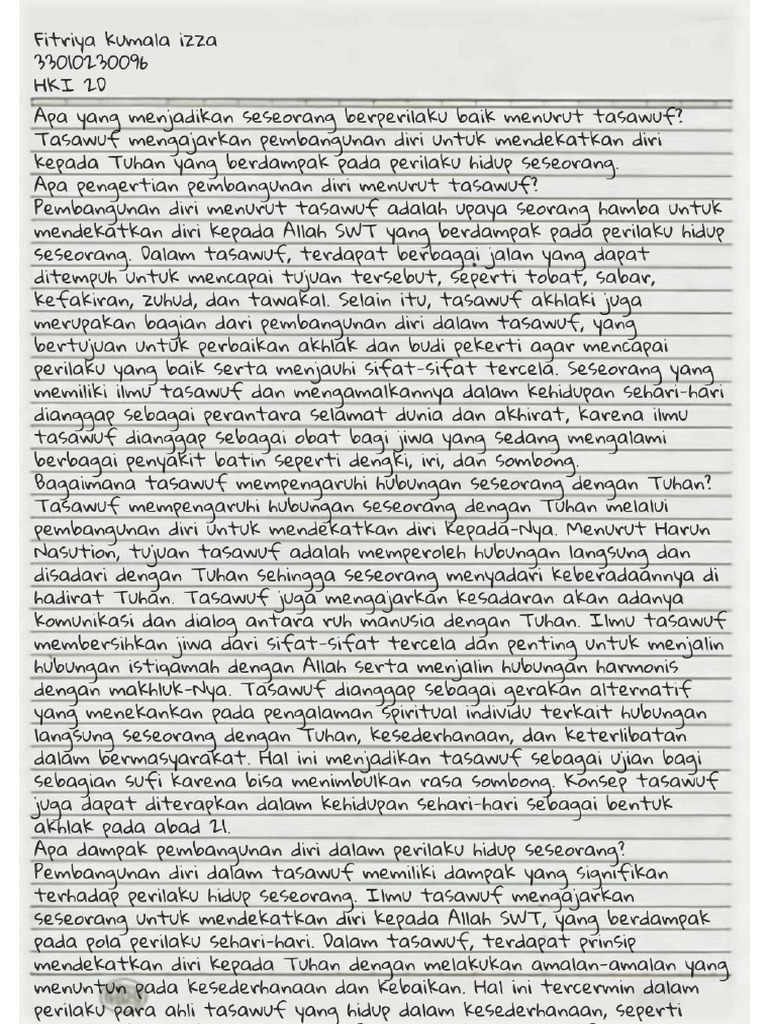 Fitriya kumala izza
33010230096
HKI 2D
Apa yang menjadikan seseorang berperilaku baik menurut tasawuf?
Tasawuf mengajarkan pembangunan diri untuk mendekatkan diri
kepada Tuhan yang berdampak pada perilaku hidup seseorang.
Apa pengertian pembangunan diri menurut tasawuf?
Pembangunan diri menurut tasawuf adalah upaya seorang hamba untuk
mendekatkan diri kepada Allah SWT yang berdampak pada perilaku hidup
seseorang. Dalam tasawuf, terdapat berbagai jalan yang dapat
ditempuh untuk mencapai tujuan tersebut, seperti tobat, sabar,
kefakiran, zuhud, dan tawakal. Selain itu, tasawuf akhlaki juga
merupakan bagian dari pembangunan diri dalam tasawuf, yang
bertujuan untuk perbaikan akhlak dan budi pekerti agar mencapai
perilaku yang baik serta menjauhi sifat-sifat tercela. Seseorang yang
memiliki ilmu tasawuf dan mengamalkannya dalam kehidupan sehari-hari
dianggap sebagai perantara selamat dunia dan akhirat, karena ilmu
tasawuf dianggap sebagai obat bagi jiwa yang sedang mengalami
berbagai penyakit batin seperti dengki, iri, dan sombong.
Bagaimana tasawuf mempengaruhi hubungan seseorang dengan Tuhan?
Tasawuf mempengaruhi hubungan seseorang dengan Tuhan melalui
pembangunan diri untuk mendekatkan diri kepada-Nya. Menurut Harun
Nasution, tujuan tasawuf adalah memperoleh hubungan langsung dan
disadari dengan Tuhan sehingga seseorang menyadari keberadaannya di
hadirat Tuhan. Tasawuf juga mengajarkan kesadaran akan adanya
komunikasi dan dialog antara ruh manusia dengan Tuhan. Ilmu tasawuf
membersihkan jiwa dari sifat-sifat tercela dan penting untuk menjalin
hubungan istiqamah dengan Allah serta menjalin hubungan harmonis
dengan makhluk-Nya. Tasawuf dianggap sebagai gerakan alternatif
yang menekankan pada pengalaman spiritual individu terkait hubungan
langsung seseorang dengan Tuhan, kesederhanaan, dan keterlibatan
dalam bermasyarakat. Hal ini menjadikan tasawuf sebagai ujian bagi
sebagian sufi karena bisa menimbulkan rasa sombong. Konsep tasawuf
juga dapat diterapkan dalam kehidupan sehari-hari sebagai bentuk
akhlak pada abad 21.
Apa dampak pembangunan diri dalam perilaku hidup seseorang?
Pembangunan diri dalam tasawuf memiliki dampak yang signifikan
terhadap perilaku hidup seseorang. Ilmu tasawuf mengajarkan
seseorang untuk mendekatkan diri kepada Allah SWT, yang berdampak
pada pola perilaku sehari-hari. Dalam tasawuf, terdapat prinsip
mendekatkan diri kepada Tuhan dengan melakukan amalan-amalan yang
menuntun pada kesederhanaan dan kebaikan. Hal ini tercermin dalam
perilaku para ahli tasawuf yang hidup dalam kesederhanaan, seperti